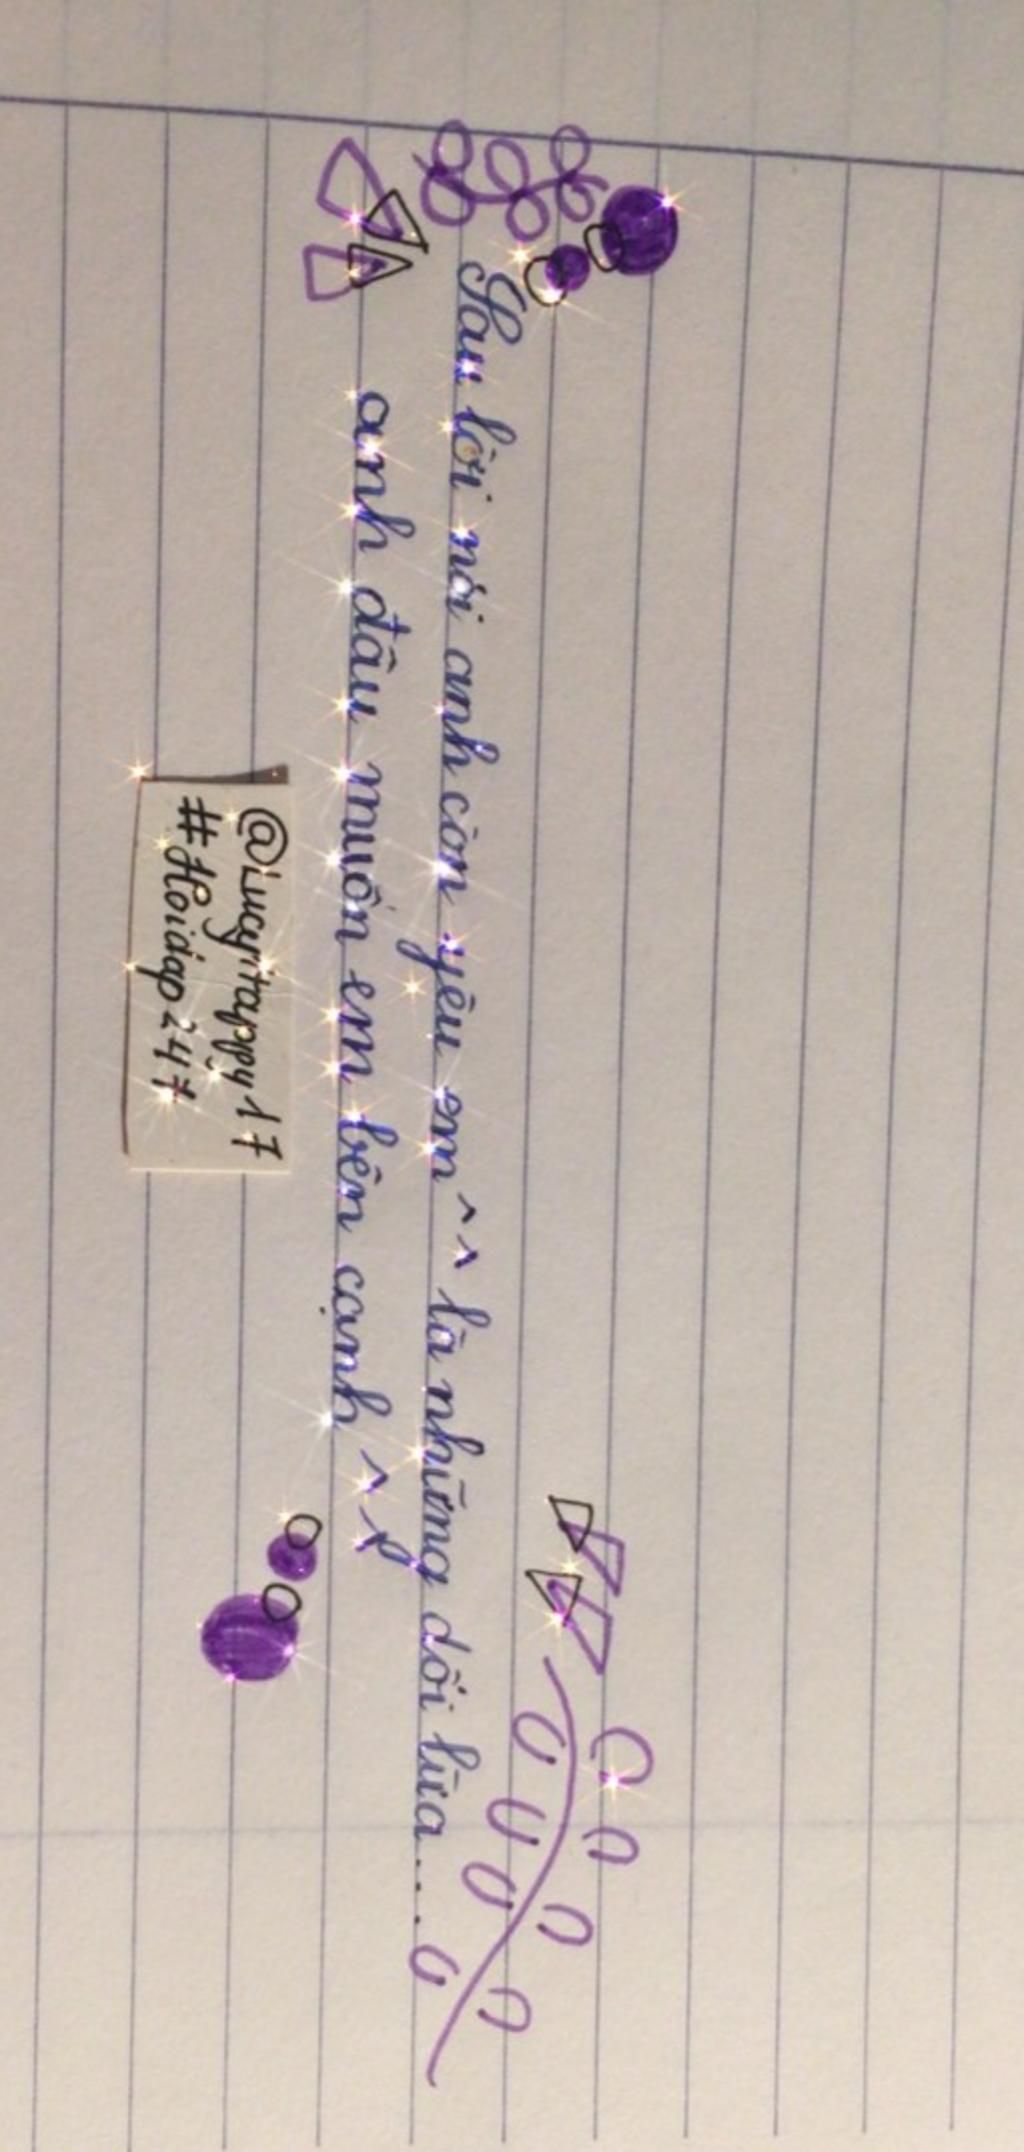 Sau lời nói anh còn yêu em ^^ là những dối lừa....
anh đâu muốn em bên cạnh ^
@Lucyitappy17
#Hoidap247